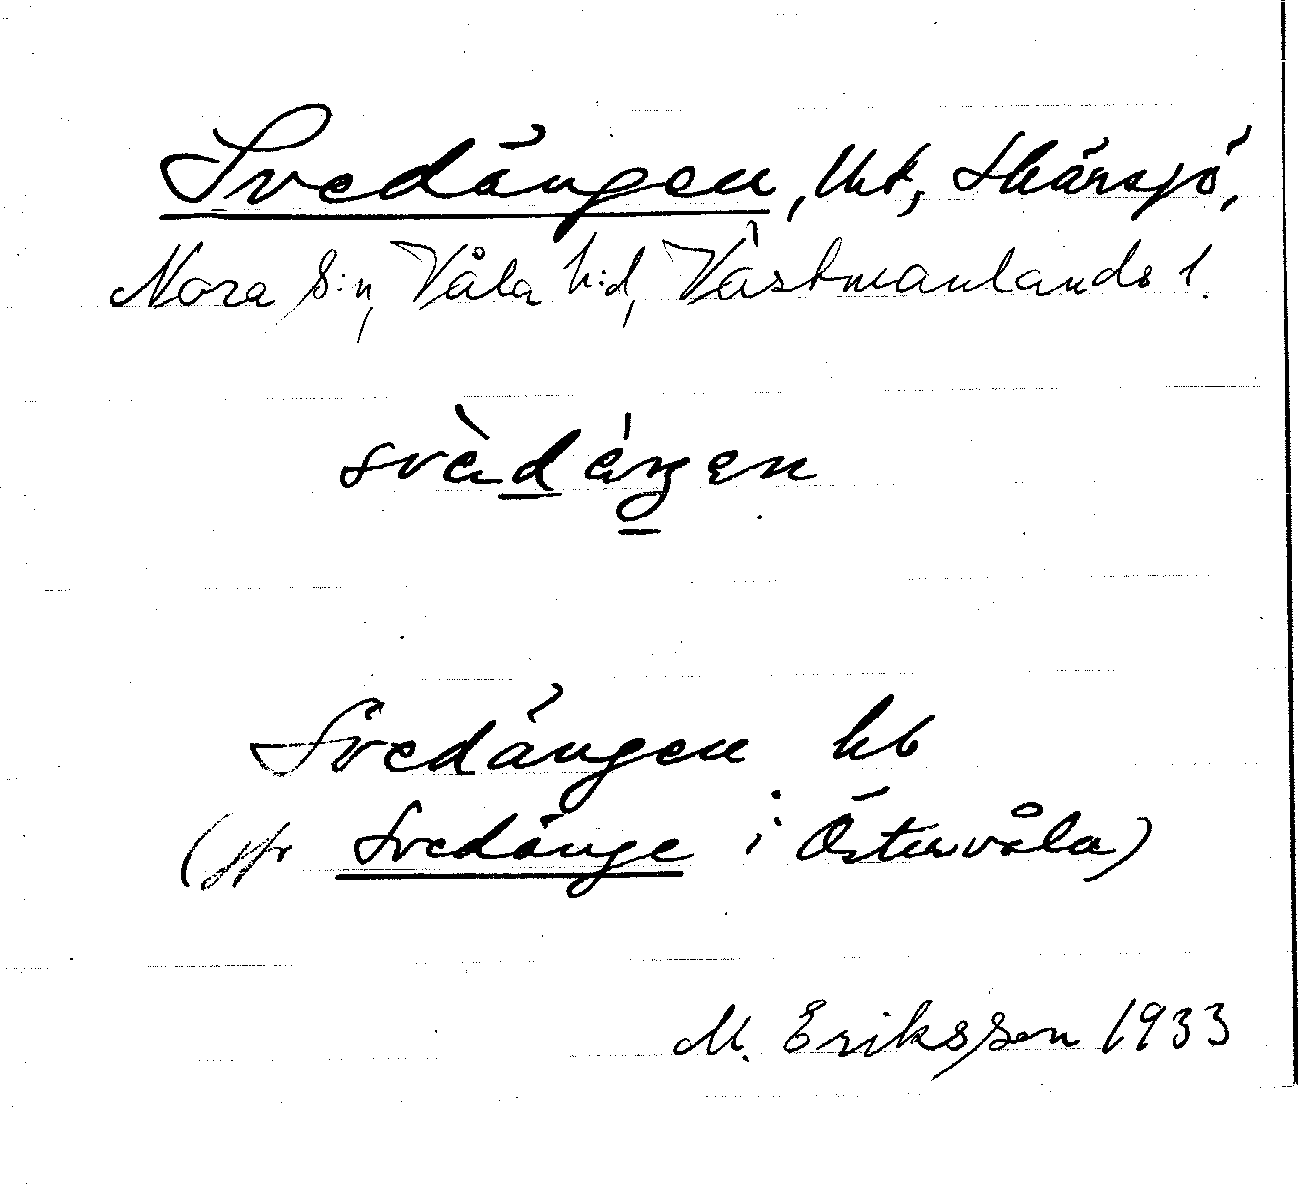 Svedängen, Utr, Härsjö,
Nora s:n, Våla h:d, Västmanlands l.
svèdáŋen
Svedängen hb
(jfr Svedänge i Östervåla)
M. Eriksson 1933